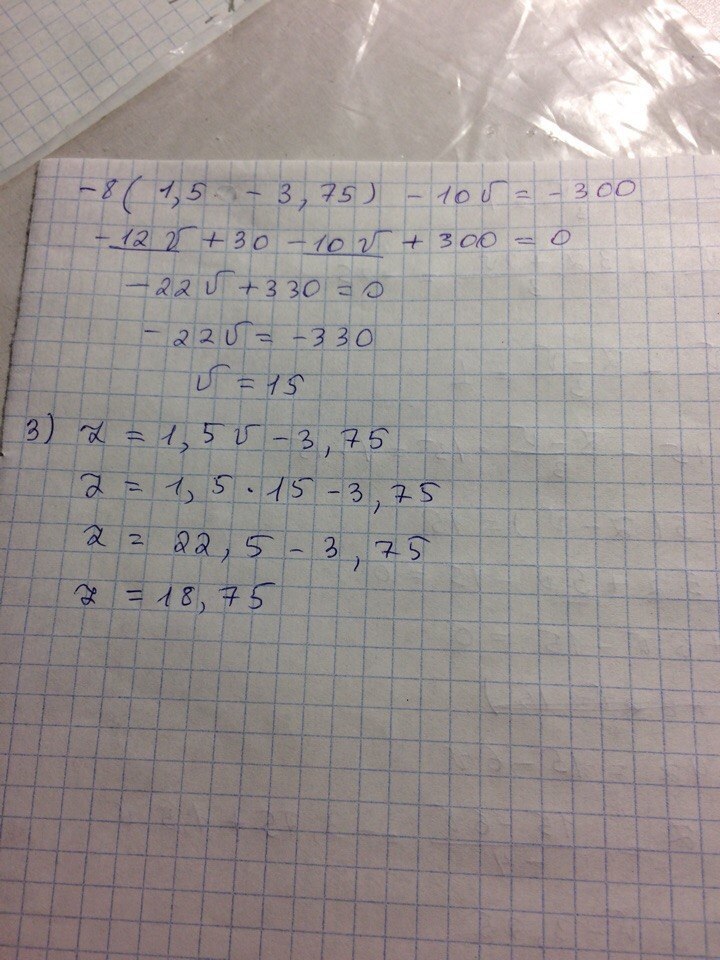 -8( 1,5 - 3,75) - 10v = -300
-12v + 30 - 10v + 300 = 0
-22v + 330 = 0
-22v = -330
v = 15
3) z = 1,5v - 3,75
z = 1,5 · 15 - 3,75
z = 22,5 - 3,75
z = 18,75